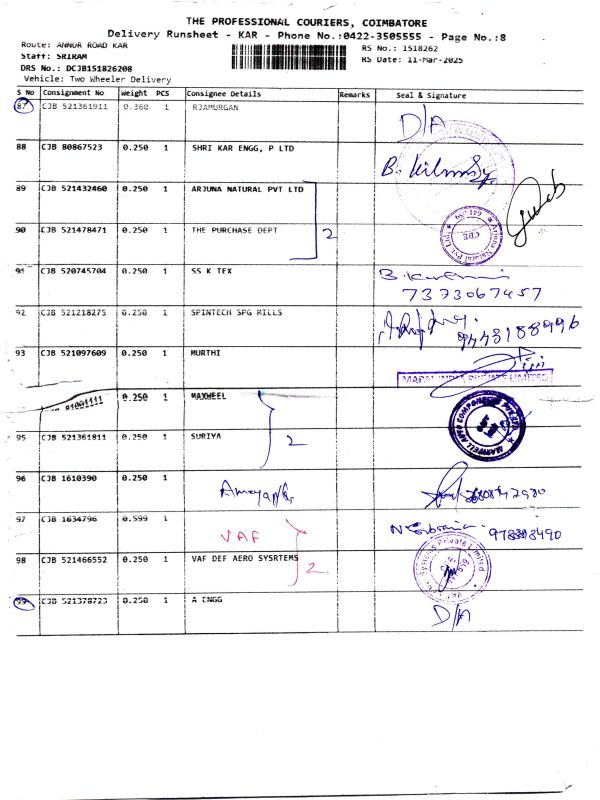 THE PROFESSIONAL COURIERS, COIMBATORE
Delivery Runsheet - KAR - Phone No.:0422-3505555 - Page No.:8
Route: ANNUR ROAD KAR
RS No.: 1518262
Staff: SRIRAM
RS Date: 11-Mar-2025
DRS No.: DCJB151826208
Vehicle: Two Wheeler Delivery
S No Consignment No Weight PCS Consignee Details Remarks Seal & Signature
87 CJB 521361911 0.360 1 RJAMURGAN D/A
88 CJB 80867523 0.250 1 SHRI KAR ENGG, P LTD B.
89 CJB 521432460 0.250 1 ARJUNA NATURAL PVT LTD
90 CJB 521478471 0.250 1 THE PURCHASE DEPT 2
91 CJB 520745704 0.250 1 SS K TEX B.
7373067457
92 CJB 521218275 0.250 1 SPINTECH SPG MILLS 9443188496
93 CJB 521097609 0.250 1 MURTHI
PRIVATE LIMITED
0.250 1 MAXWEEL
95 CJB 521361811 0.250 1 SURIYA 2
96 CJB 1610390 0.250 1
97 CJB 1634796 0.599 1 VAF
98 CJB 521466552 0.250 1 VAF DEF AERO SYSRTEMS 2
99 CJB 521378723 0.250 1 A ENGG D/A